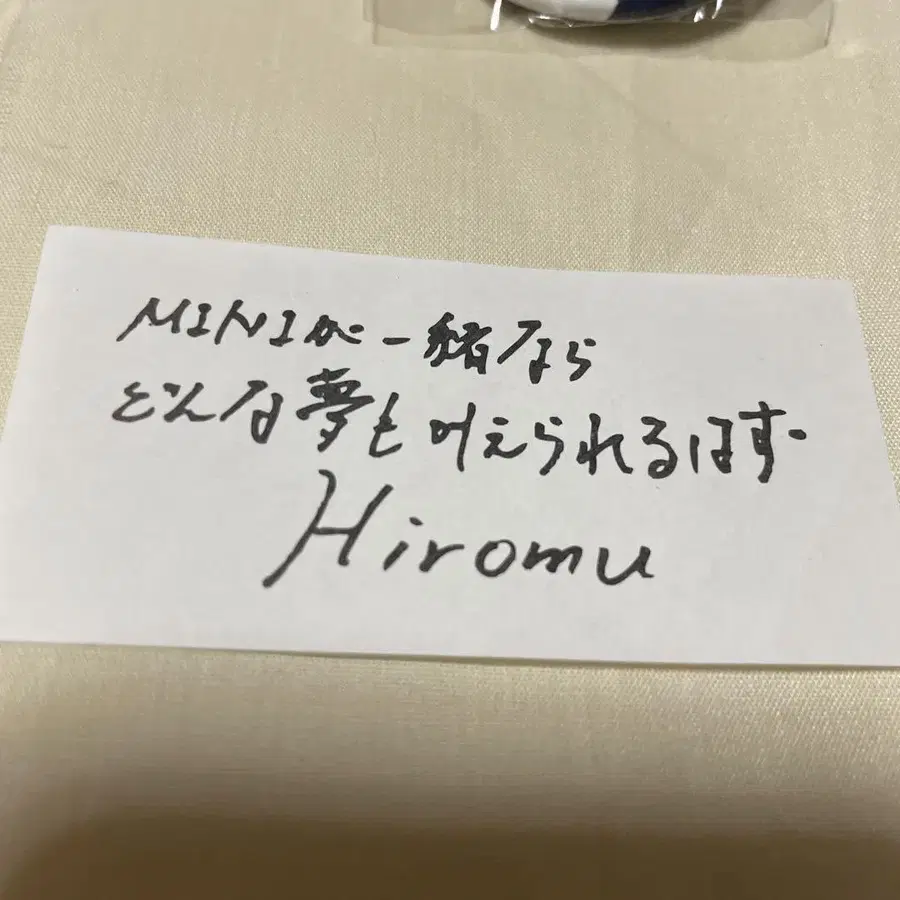 MINIが一緒なら
どんな夢も叶えられるはず。
Hiromu